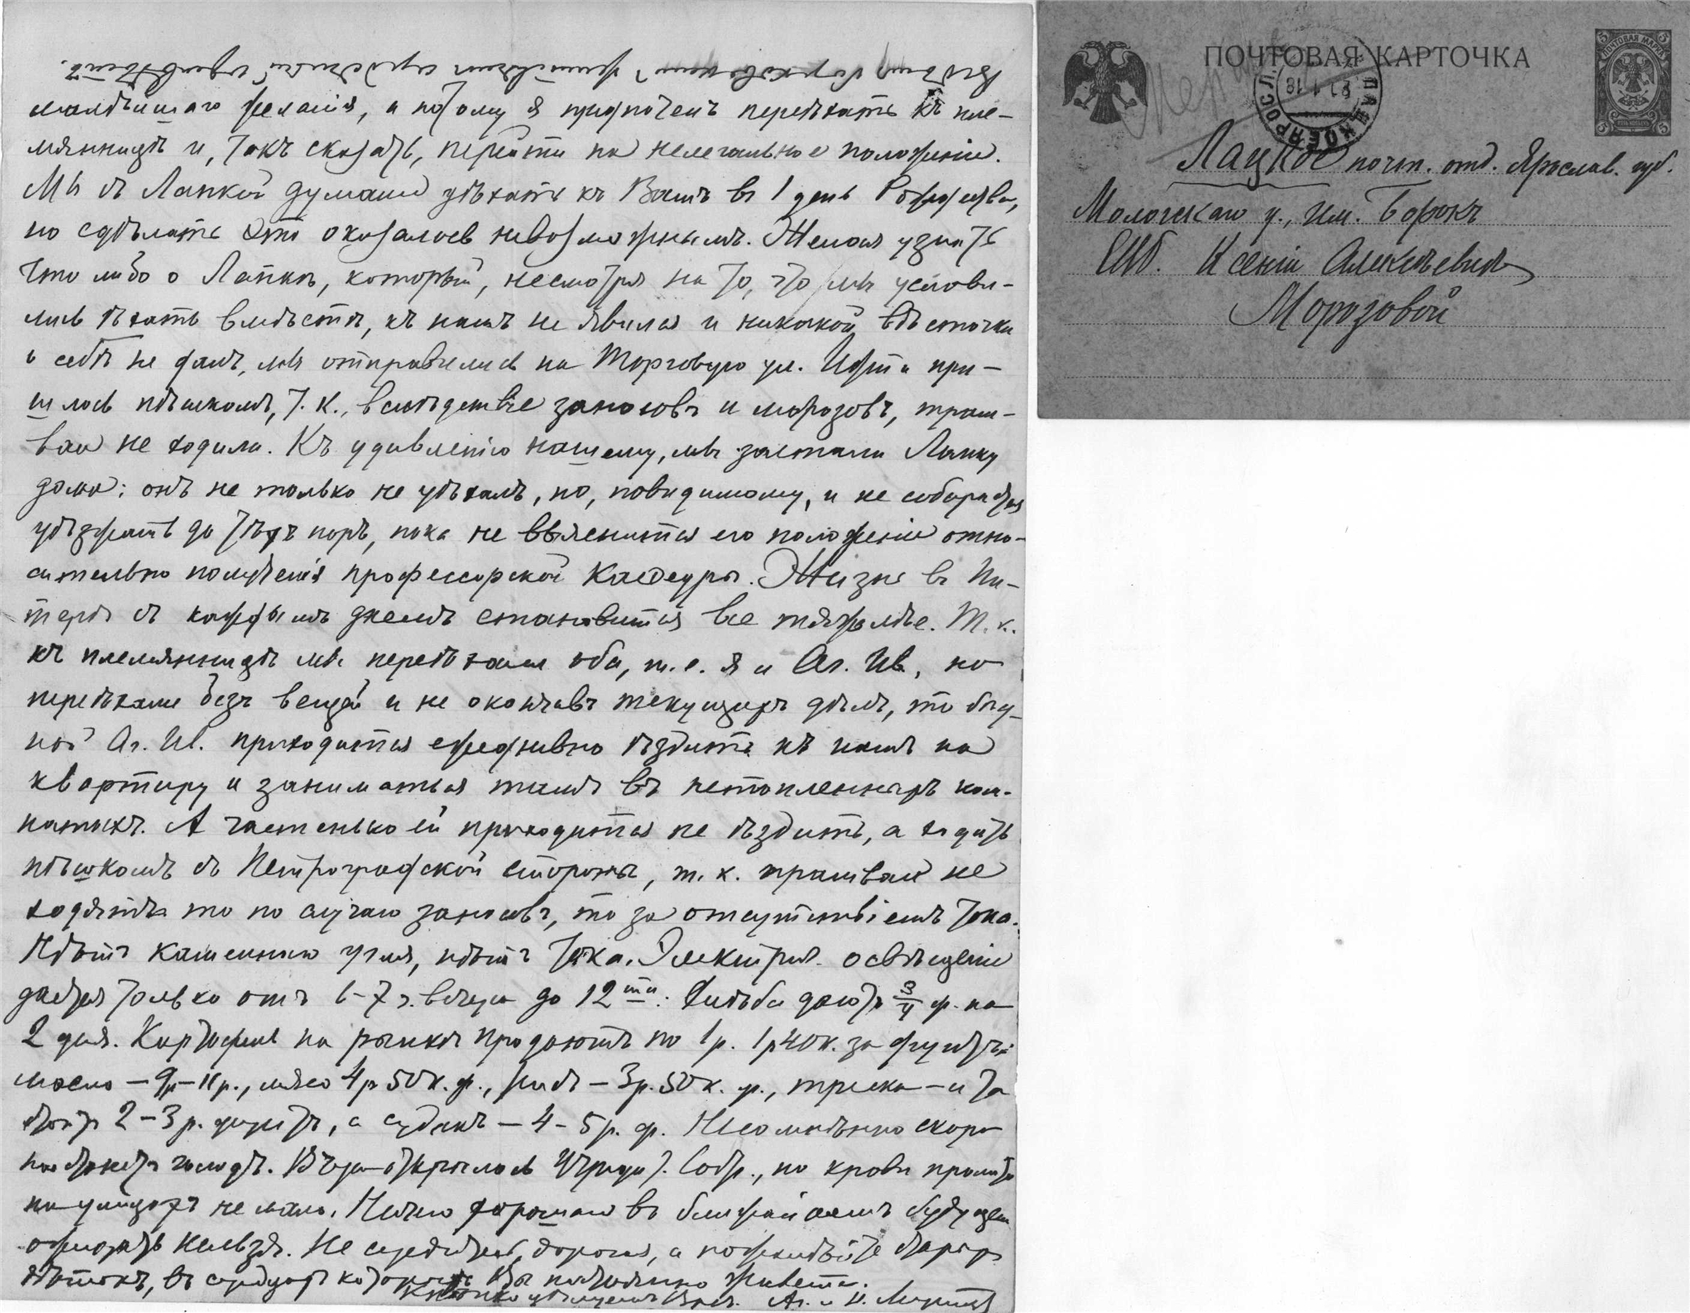 малѣйшаго желанія, а потому я предпочелъ переѣхать къ пле-
мянницѣ и, такъ сказать, перейти на нелегальное положеніе.
Мы съ Лапкой думали уѣхать къ Вамъ въ 1 день Рождества,
но сдѣлать это оказалось невозможнымъ. Желая узнать
что либо о Лапкѣ, который, несмотря на то, что мы услови-
лись ѣхать вмѣстѣ, къ намъ не явился и никакой вѣсточки
о себѣ не далъ, мы отправились на Торговую ул. Идти при-
шлось пѣшкомъ, т. к., вслѣдствіе заносовъ и морозовъ, трам-
ваи не ходили. Къ удивленію нашему, мы застали Лапку
дома: онъ не только не уѣхалъ, но, повидимому, и не собирается
уѣзжать до тѣхъ поръ, пока не выяснится его положеніе отно-
сительно полученія профессорской кафедры. Жизнь въ Пи-
терѣ съ каждымъ днемъ становится все тяжелѣе. Т. к.
къ племянницѣ мы переѣхали оба, т. е. я и Ал. Ив., но
переѣхали безъ вещей и не окончивъ текущихъ дѣлъ, то бѣд-
ной Ал. Ив. приходится ежедневно ѣздить къ намъ на
квартиру и заниматься тамъ въ нетопленныхъ ком-
натахъ. А частенько ей приходится не ѣздить, а ходить
пѣшкомъ съ Петроградской стороны, т. к. трамваи не
ходятъ то по случаю заносовъ, то за отсутствіемъ тока.
Нѣтъ каменнаго угля, нѣтъ тока. Электрич. освѣщеніе
дается только отъ 6-7 ч. вечера до 12ти. Хлѣба даютъ 3/4 ф. на
2 дня. Картофель на рынкѣ продаютъ по 1 р. 1 р 40 к. за фунтъ;
масло – 9 р – 11 р., мясо 4 р 50 к. ф., – 3 р. 50 к. ф., треска – и та
2 – 3 р. фунтъ, а судакъ – 4 – 5 р. ф. Несомнѣнно скоро
настанетъ голодъ. Вчера открылось Учредит. Собр., но крови пролито
на улицахъ не мало. Ничего хорошаго въ ближайшемъ будущемъ
ожидать нельзя. Не сердитесь, дорогая, а пожалѣйте
въ сердцахъ которыхъ Вы постоянно живете.
цѣлуемъ Васъ. Ал. и Н.
ПОЧТОВАЯ КАРТОЧКА
ПОЧТОВАЯ МАРКА
Лацкое почт. отд. Ярослав. губ.
Мологскаго у., им. Борокъ
ЕВб. Ксеніи Алексѣевнѣ
Морозовой